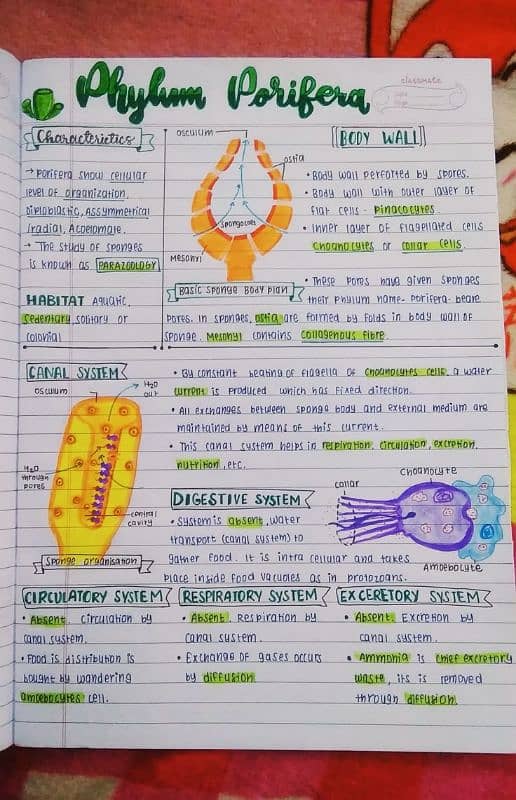 Phylum Porifera
classmate
Characteristics
→ Porifera show cellular
level of organization,
Diploblastic, Assymmetrical
/radial, Acoelomate.
→ The study of sponges
is known as PARAZOOLOGY
HABITAT Aquatic,
Sedentary, solitary or
colonial
osculum
ostia
Spongocoel
Mesohyl
Basic Sponge Body Plan
BODY WALL
• Body wall perforted by spores.
• Body wall with outer layer of
flat cells - pinacocytes.
• Inner layer of flagellated cells
Choanocytes or collar cells.
• These pores have given sponges
their phylum name- porifera- beare
pores. In sponges, ostia are formed by folds in body wall of
sponge. Mesohyl contains collagenous fibre.
CANAL SYSTEM
osculum
H2O
out
H2O
through
pores
central
cavity
Sponge organisation
• By constant beating of flagella of choanocytes cells, a water
current is produced which has fixed direction.
• All exchanges between sponge body and external medium are
maintained by means of this current.
• This canal system helps in respiration, circulation, excretion,
nutrition, etc.
DIGESTIVE SYSTEM
• System is absent, water
transport (canal system) to
gather food. It is intra cellular and takes
place inside food vacuoles as in protozoans.
collar
choanocyte
Amoebolyte
CIRCULATORY SYSTEM
• Absent, circulation by
canal system.
• Food is distribution is
bought by wandering
amoebocytes cell.
RESPIRATORY SYSTEM
• Absent. Respiration by
canal system.
• Exchange of gases occurs
by diffusion.
EXCERETORY SYSTEM
• Absent. Excretion by
canal system.
• Ammonia is chief excretory
waste, its is removed
through diffusion.